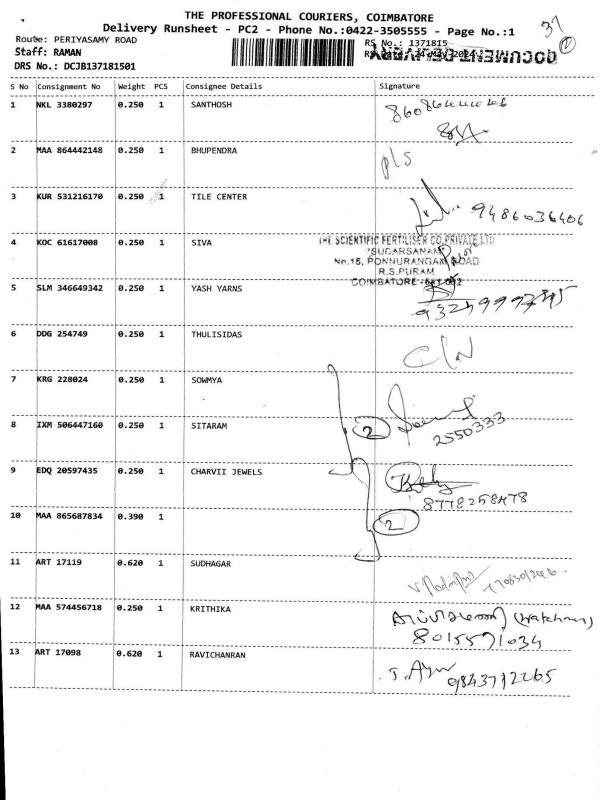 THE PROFESSIONAL COURIERS, COIMBATORE
Delivery Runsheet - PC2 - Phone No.:0422-3505555 - Page No.:1
37
Route: PERIYASAMY ROAD
RS No.: 1371815
Staff: RAMAN
DRS No.: DCJB137181501
S No Consignment No Weight PCS Consignee Details Signature
1 NKL 3380297 0.250 1 SANTHOSH
2 MAA 864442148 0.250 1 BHUPENDRA
P/S
3 KUR 531216170 0.250 1 TILE CENTER
9486036406
4 KOC 61617008 0.250 1 SIVA
THE SCIENTIFIC FERTILISER CO.PRIVATE LTD
"SUDARSANAM"
No.15, PONNURANGAM ROAD
R.S.PURAM
COIMBATORE-641 002
5 SLM 346649342 0.250 1 YASH YARNS
6 DDG 254749 0.250 1 THULISIDAS
7 KRG 228024 0.250 1 SOWMYA
8 IXM 506447160 0.250 1 SITARAM
2
2550333
9 EDQ 20597435 0.250 1 CHARVII JEWELS
8778258478
10 MAA 865687834 0.390 1
2
11 ART 17119 0.620 1 SUDHAGAR
12 MAA 574456718 0.250 1 KRITHIKA
(watchman)
8015571034
13 ART 17098 0.620 1 RAVICHANRAN
9843712265